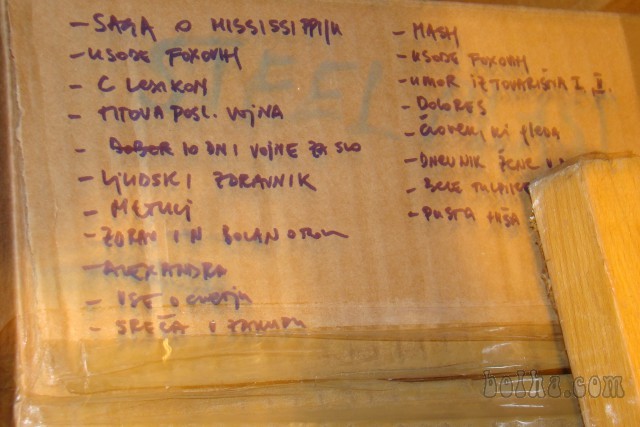 - SAGA O MISSISSIPPIJU
- USODE FOXOVIH
- C LEXIKON
- TITOVA POSL. VOJNA
- 10 DNI VOJNE ZA SLO
- LJUDSKI ZDRAVNIK
- METULJ
- ZDRAV IN BOLAN OTROK
- ALEXANDRA
- VSE O CVETJU
- SREČA V ZAKONU
- MASH
- USODE FOXOVIH
- UMOR IZ TOVARIŠTVA I, II.
- DOLORES
- ČLOVEK, KI GLEDA
- DNEVNIK ŽENE
- BELE TULPIKE
- PUSTA HIŠA
bolha.com